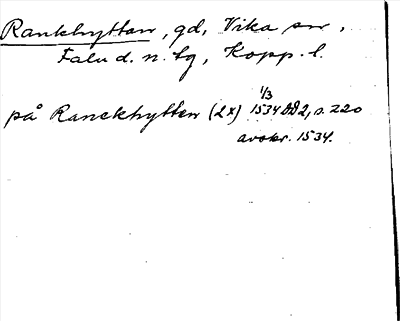 Rankhyttan, gd, Vika sn,
Falu d. n. tg, Kopp. l.
1/3
på Ranckhytten (2x) 1534 DD2, s. 220
avskr. 1534.